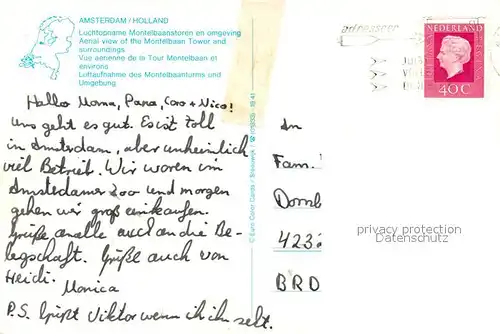 AMSTERDAM / HOLLAND
Luchtopname Montelbaanstoren en omgeving
Aerial view of the Montelbaan Tower and
surroundings
Vue aerienne de la Tour Montelbaan et
environs
Luftaufnahme des Montelbaanturms und
Umgebung
Hallo Mama, Papa, Caro + Nico!
Uns geht es gut. Es ist toll
in Amsterdam, aber unheimlich
viel Betrieb. Wir waren im
Amsterdamer Zoo und morgen
gehen wir groß einkaufen.
Grüße an alle auch an die Be-
legschaft. Grüße auch von
Heidi.
Monica
P.S. Grüßt Viktor wenn ihr ihn seht.
© Euro Color Cards / Breukelen
adresseer
NEDERLAND
40 C
An
Fam.
Dornb
423
BRD
privacy protection
Datenschutz